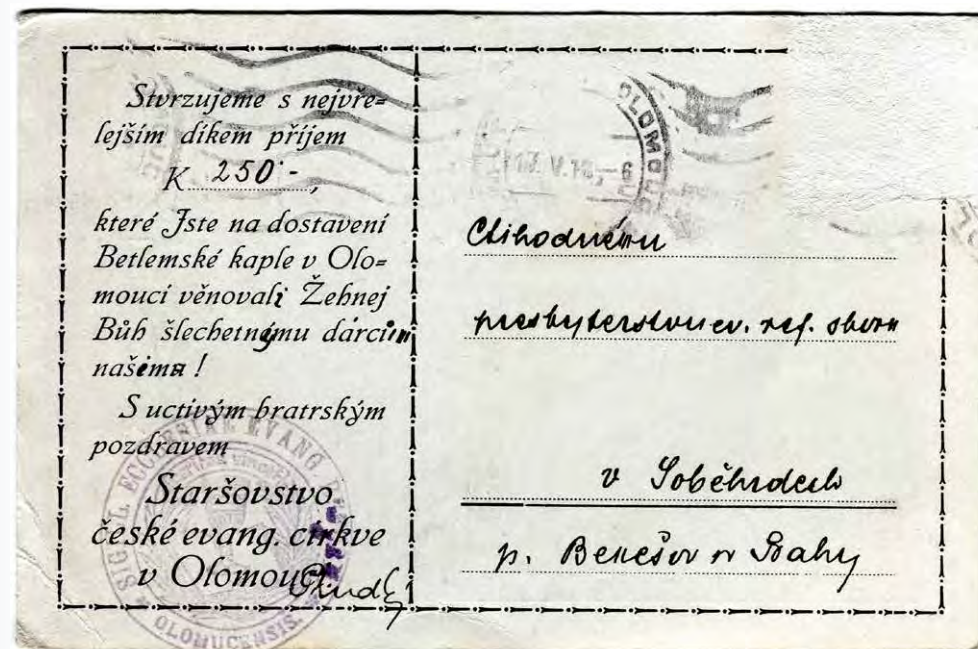 Stvrzujeme s nejvře=
lejším díkem příjem
K 250·-,
které Jste na dostavení
Betlemské kaple v Olo=
mouci věnovali Žehnej
Bůh šlechetným dárcům
našim !
S uctivým bratrským
pozdravem
Staršovstvo
české evang. církve
v Olomouci
SIGILL. ECCLESIAE EVANG
OLOMUCENSIS.
OLOMOUC
17. V. 18 - 6
Ctihodnému
presbyterstvu ev. ref. sboru
v Soběhrdech
p. Benešov u Prahy